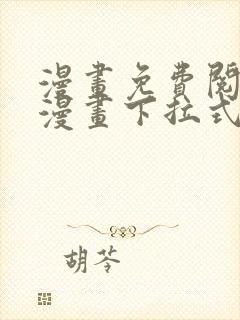 漫畫免費閱
漫畫下拉式
胡苓